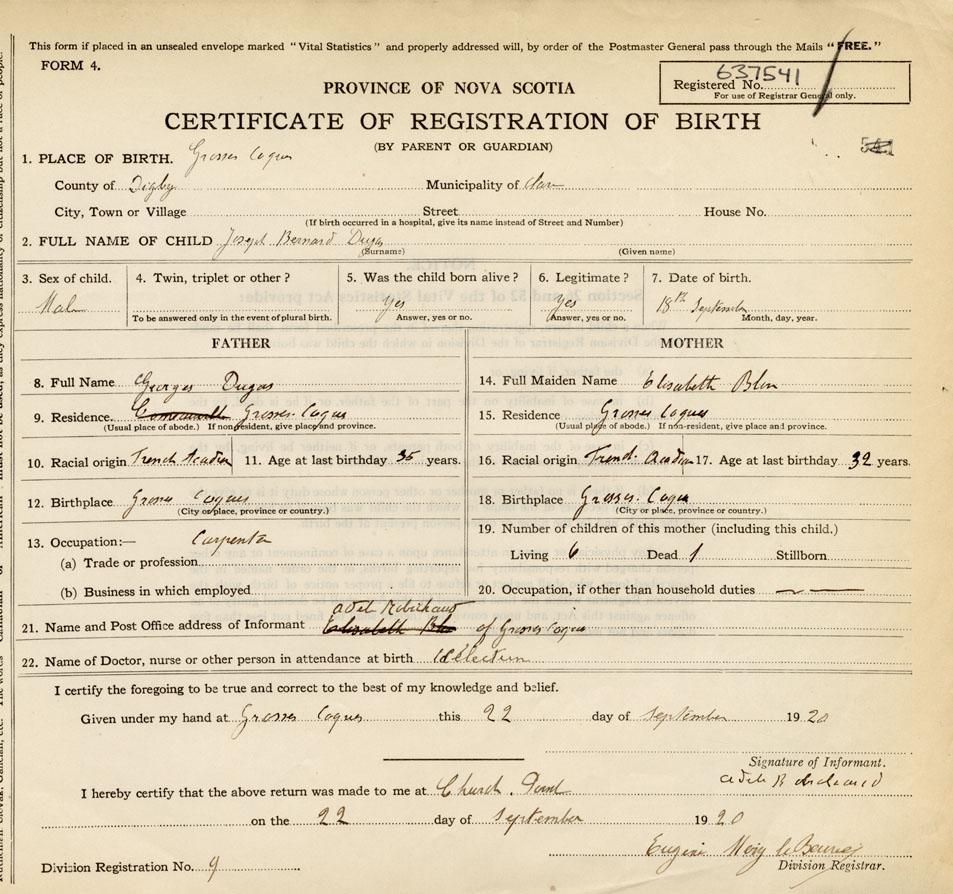 This form if placed in an unsealed envelope marked "Vital Statistics" and properly addressed will, by order of the Postmaster General pass through the Mails "FREE."
FORM 4.
637541
Registered No.
For use of Registrar General only.
PROVINCE OF NOVA SCOTIA
CERTIFICATE OF REGISTRATION OF BIRTH
(BY PARENT OR GUARDIAN)
1. PLACE OF BIRTH. Grosses Coques
County of Digby Municipality of Clare
City, Town or Village Street House No.
(If birth occurred in a hospital, give its name instead of Street and Number)
2. FULL NAME OF CHILD Joseph Bernard Dugas
(Surname) (Given name)
3. Sex of child. 4. Twin, triplet or other? 5. Was the child born alive? 6. Legitimate? 7. Date of birth.
Male yes yes 18th September
To be answered only in the event of plural birth. Answer, yes or no. Answer, yes or no. Month, day, year.
FATHER MOTHER
8. Full Name Georges Dugas 14. Full Maiden Name Elisabeth Blin
9. Residence. Grosses Coques 15. Residence Grosses Coques
(Usual place of abode.) If non-resident, give place and province. (Usual place of abode.) If non-resident, give place and province.
10. Racial origin French Acadian 11. Age at last birthday 35 years. 16. Racial origin French Acadian 17. Age at last birthday 32 years.
12. Birthplace Grosses Coques 18. Birthplace Grosses Coques
(City or place, province or country.) (City or place, province or country.)
13. Occupation:— Carpenter 19. Number of children of this mother (including this child.)
(a) Trade or profession Living 6 Dead 1 Stillborn
(b) Business in which employed 20. Occupation, if other than household duties
21. Name and Post Office address of Informant Adel Robichaud of Grosses Coques
22. Name of Doctor, nurse or other person in attendance at birth
I certify the foregoing to be true and correct to the best of my knowledge and belief.
Given under my hand at Grosses Coques this 22 day of September 1920
Signature of Informant.
I hereby certify that the above return was made to me at Church Point
on the 22 day of September 1920
Eugine
Division Registration No. 9 Division Registrar.